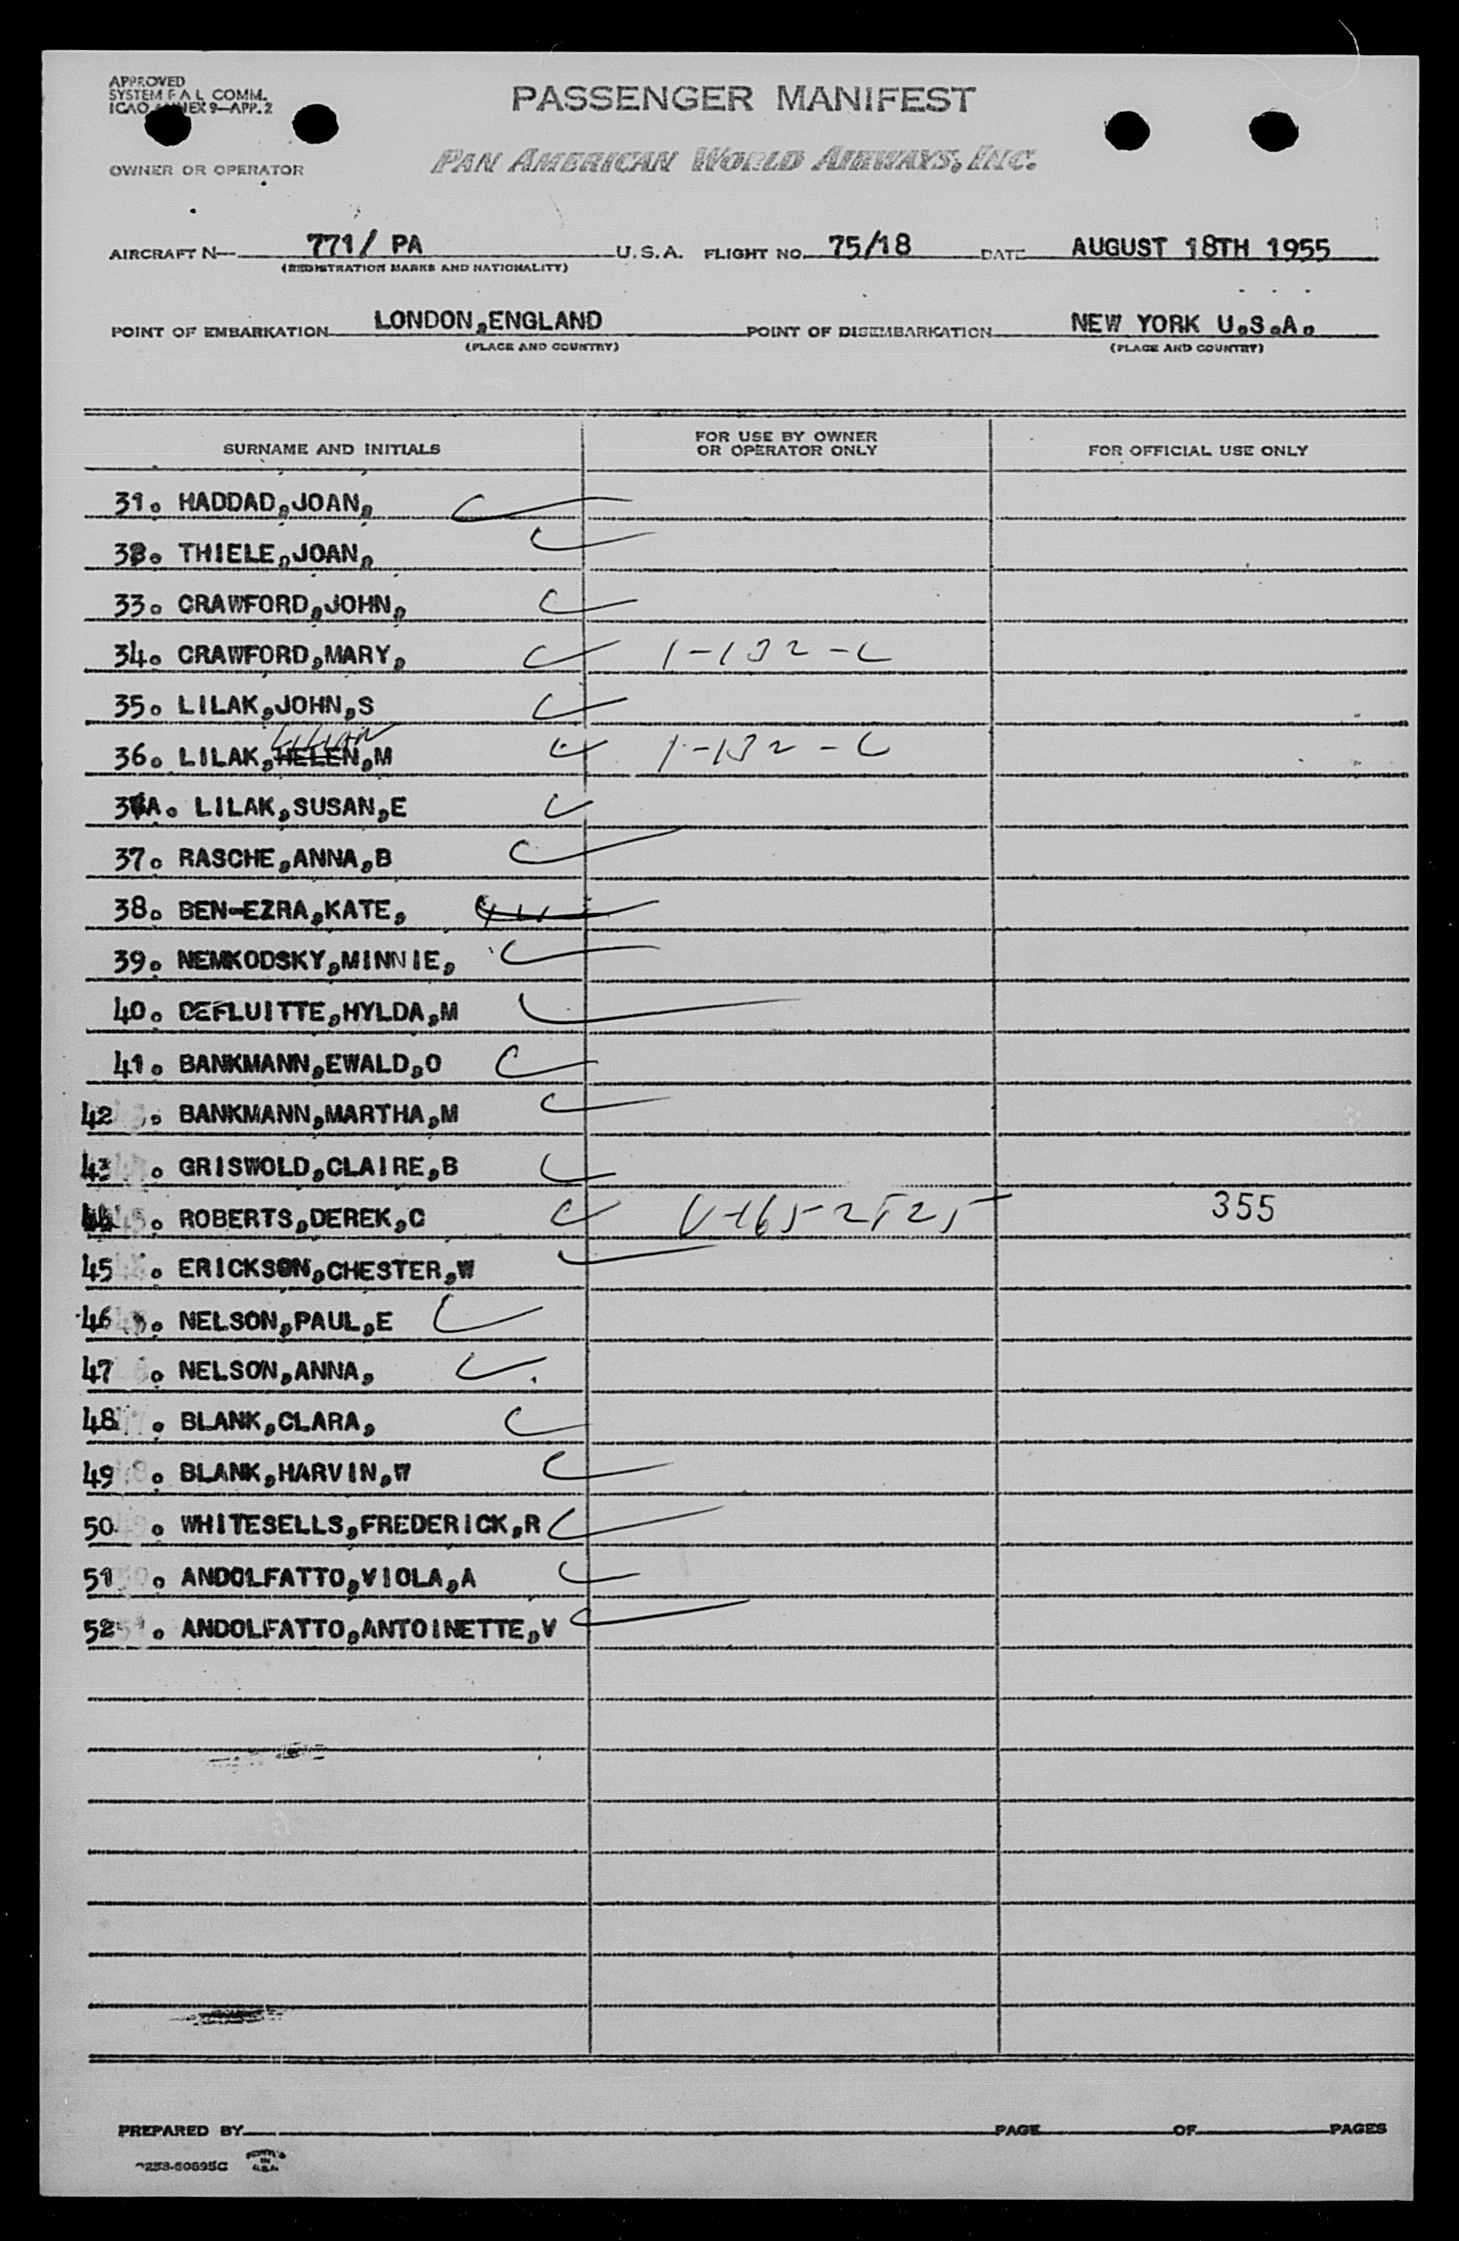 APPROVED
SYSTEM F A L COMM.
ICAO ANNEX 9—APP. 2
PASSENGER MANIFEST
OWNER OR OPERATOR
PAN AMERICAN WORLD AIRWAYS, INC.
AIRCRAFT N— 771/ PA U.S.A. FLIGHT NO. 75/18 DATE AUGUST 18TH 1955
(REGISTRATION MARKS AND NATIONALITY)
POINT OF EMBARKATION LONDON,ENGLAND POINT OF DISEMBARKATION NEW YORK U.S.A.
(PLACE AND COUNTRY) (PLACE AND COUNTRY)
SURNAME AND INITIALS FOR USE BY OWNER OR OPERATOR ONLY FOR OFFICIAL USE ONLY
31. HADDAD,JOAN,
32. THIELE,JOAN,
33. CRAWFORD,JOHN,
34. CRAWFORD,MARY, 1-132-C
35. LILAK,JOHN,S
Lilian
36. LILAK,HELEN,M 1-132-C
36A. LILAK,SUSAN,E
37. RASCHE,ANNA,B
38. BEN-EZRA,KATE,
39. NEMKODSKY,MINNIE,
40. DEFLUITTE,HYLDA,M
41. BANKMANN,EWALD,O
42. BANKMANN,MARTHA,M
43. GRISWOLD,CLAIRE,B
44. ROBERTS,DEREK,C V-165-2525 355
45. ERICKSON,CHESTER,W
46. NELSON,PAUL,E
47. NELSON,ANNA,
48. BLANK,CLARA,
49. BLANK,HARVIN,W
50. WHITESELLS,FREDERICK,R
51. ANDOLFATTO,VIOLA,A
52. ANDOLFATTO,ANTOINETTE,V
PREPARED BY PAGE OF PAGES
PRINTED IN U.S.A.